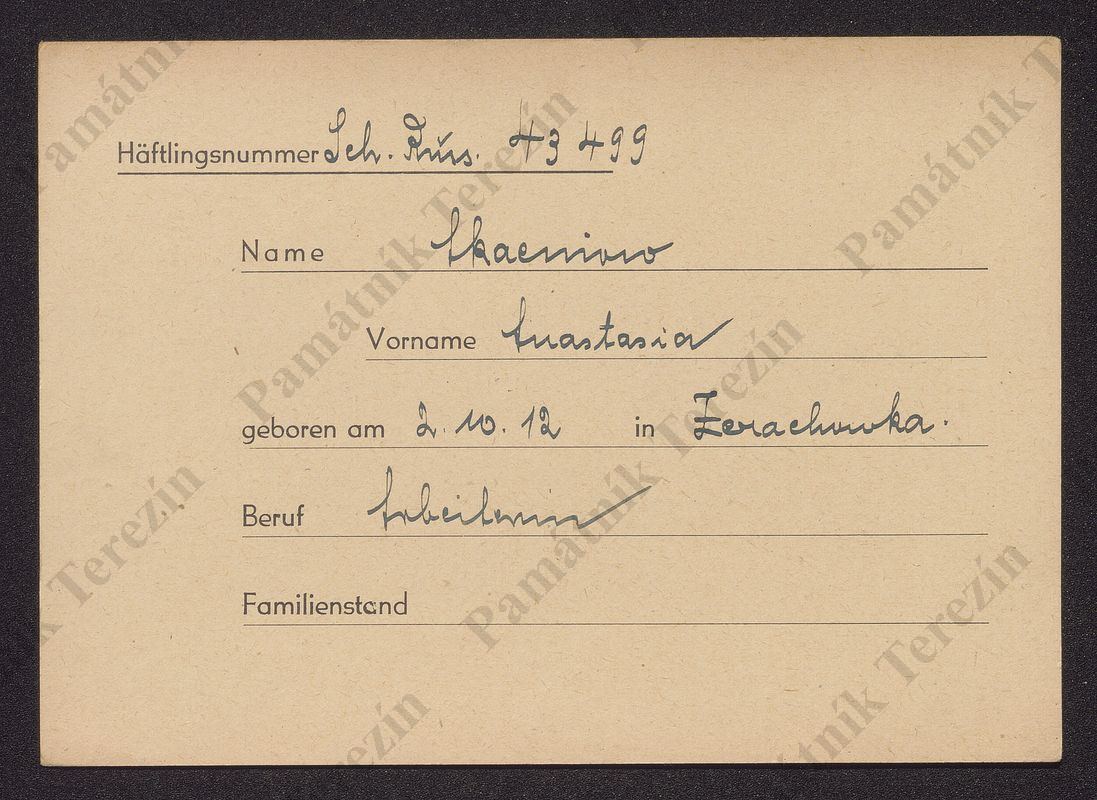 Häftlingsnummer Sch. Rus. 43 499
Name
Vorname Anastasia
geboren am 2.10.12 in Zerachowka.
Beruf Arbeiterin
Familienstand
Památník Terezín